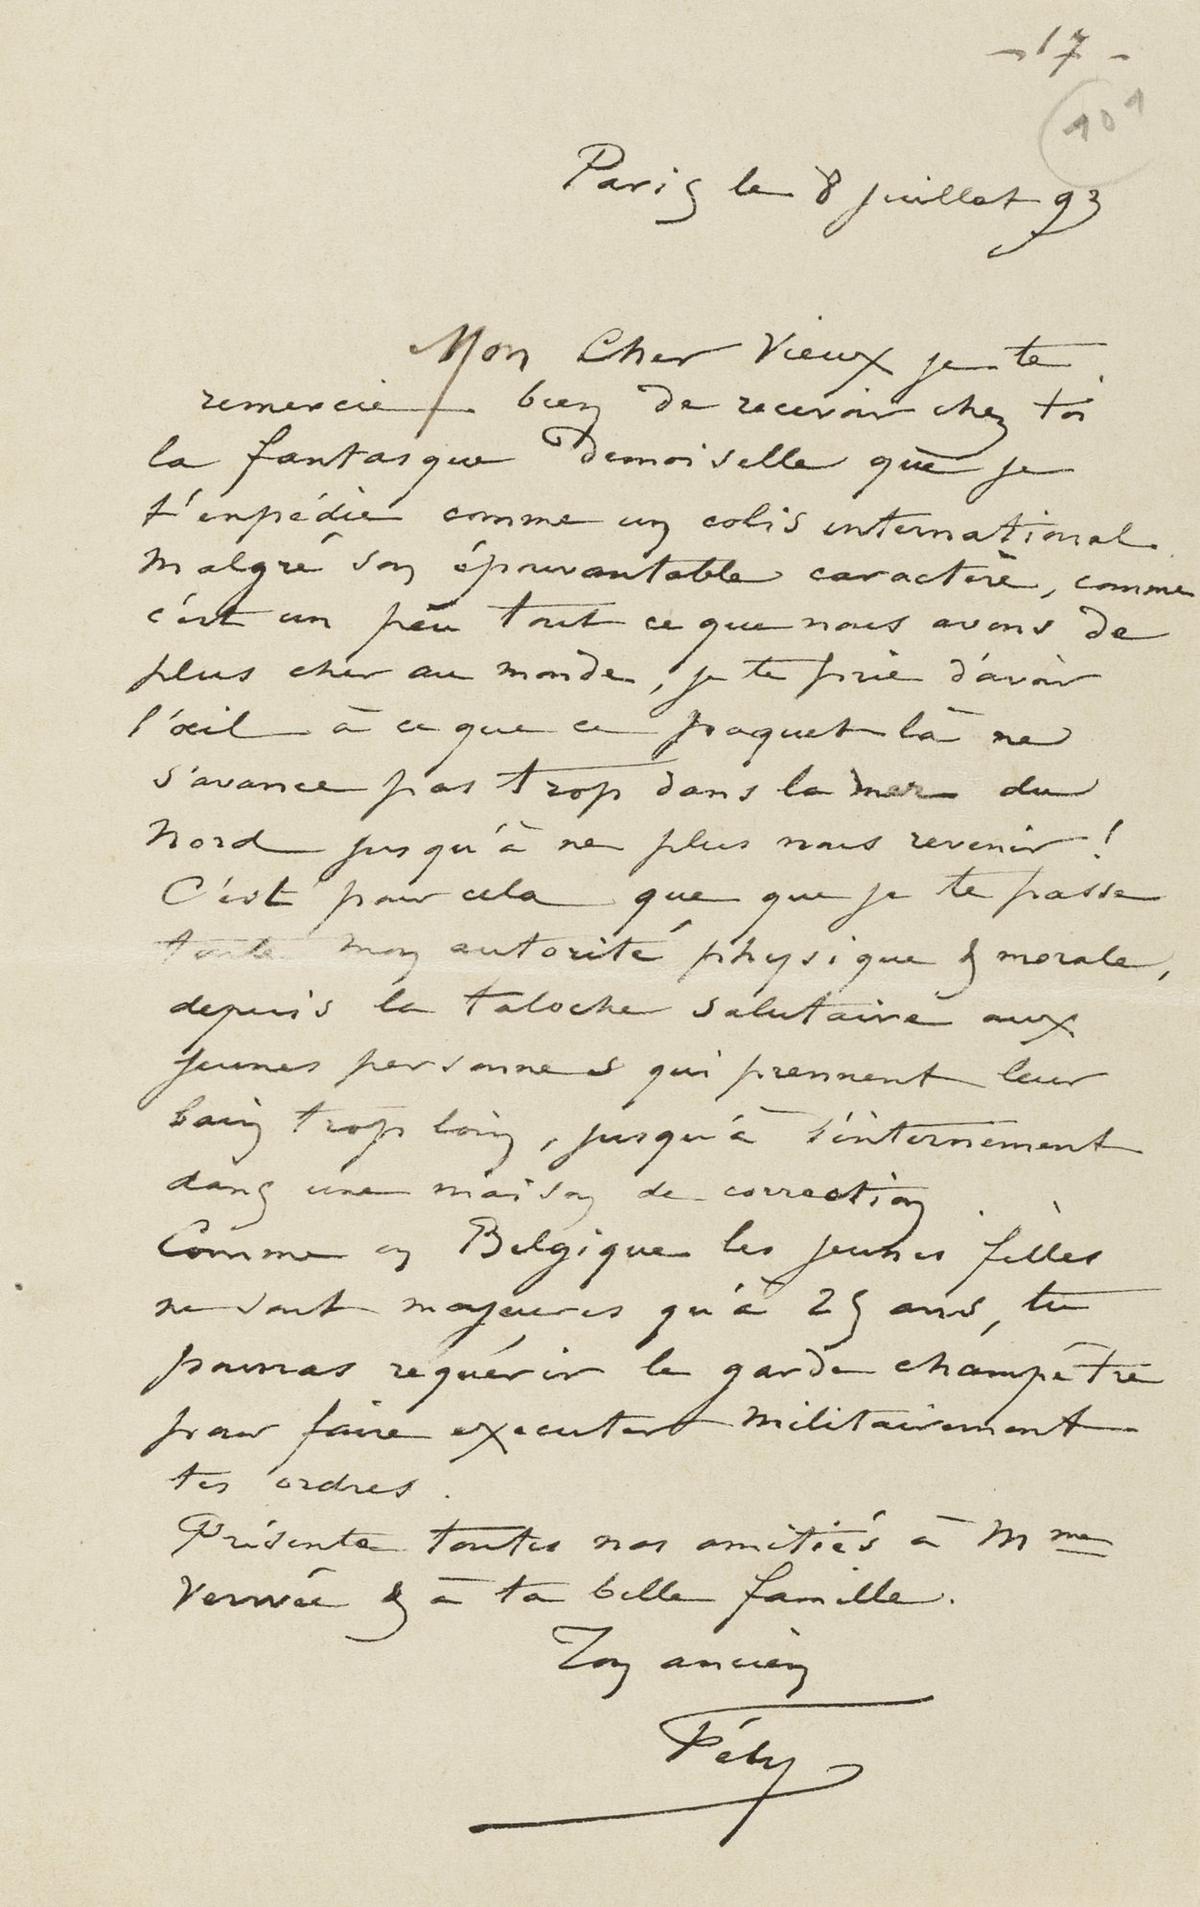 - 17 -
101
Paris le 8 juillet 93
Mon Cher Vieux je te
remercie bien de recevoir chez toi
la fantasque Demoiselle que je
t'expédie comme un colis international
malgré son épouvantable caractère, comme
c'est un peu tout ce que nous avons de
plus cher au monde, je te prie d'avoir
l'œil à ce que ce paquet là ne
s'avance pas trop dans la mer du
Nord jusqu'à ne plus nous revenir !
C'est pour cela que que je te passe
toute mon autorité physique & morale,
depuis la taloche salutaire aux
jeunes personnes qui prennent leur
bain trop loin, jusqu'à l'internement
dans une maison de correction.
Comme en Belgique les jeunes filles
ne sont majeures qu'à 25 ans, tu
pourras requérir le garde champêtre
pour faire executer militairement
tes ordres.
Présente toutes nos amitiés à Mme
Verwée & à ta belle famille.
Ton ancien
Fély